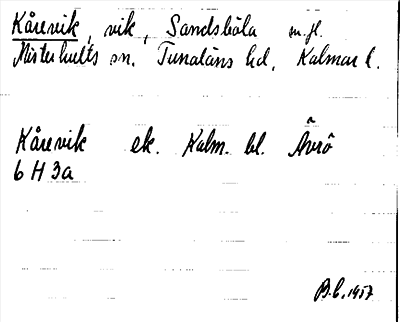 Kårevik, vik, Sandsböla m.fl.
Misterhults sn. Tunaläns hd. Kalmar l.
Kårevik ek. Kalm. bl. Ävrö
6 H 3a
B.C. 1957